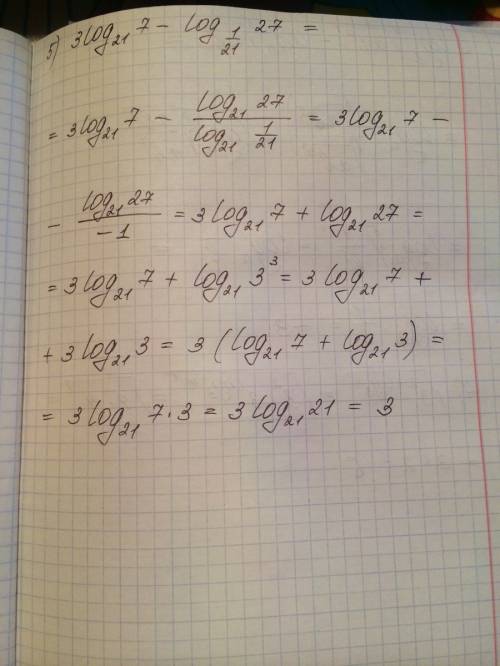 5) 3log₂₁ 7 − log_{1/21} 27 =
= 3log₂₁ 7 − \frac{log₂₁ 27}{log₂₁ \frac{1}{21}} = 3log₂₁ 7 −
− \frac{log₂₁ 27}{−1} = 3log₂₁ 7 + log₂₁ 27 =
= 3log₂₁ 7 + log₂₁ 3³ = 3log₂₁ 7 +
+ 3log₂₁ 3 = 3(log₂₁ 7 + log₂₁ 3) =
= 3log₂₁ 7·3 = 3log₂₁ 21 = 3